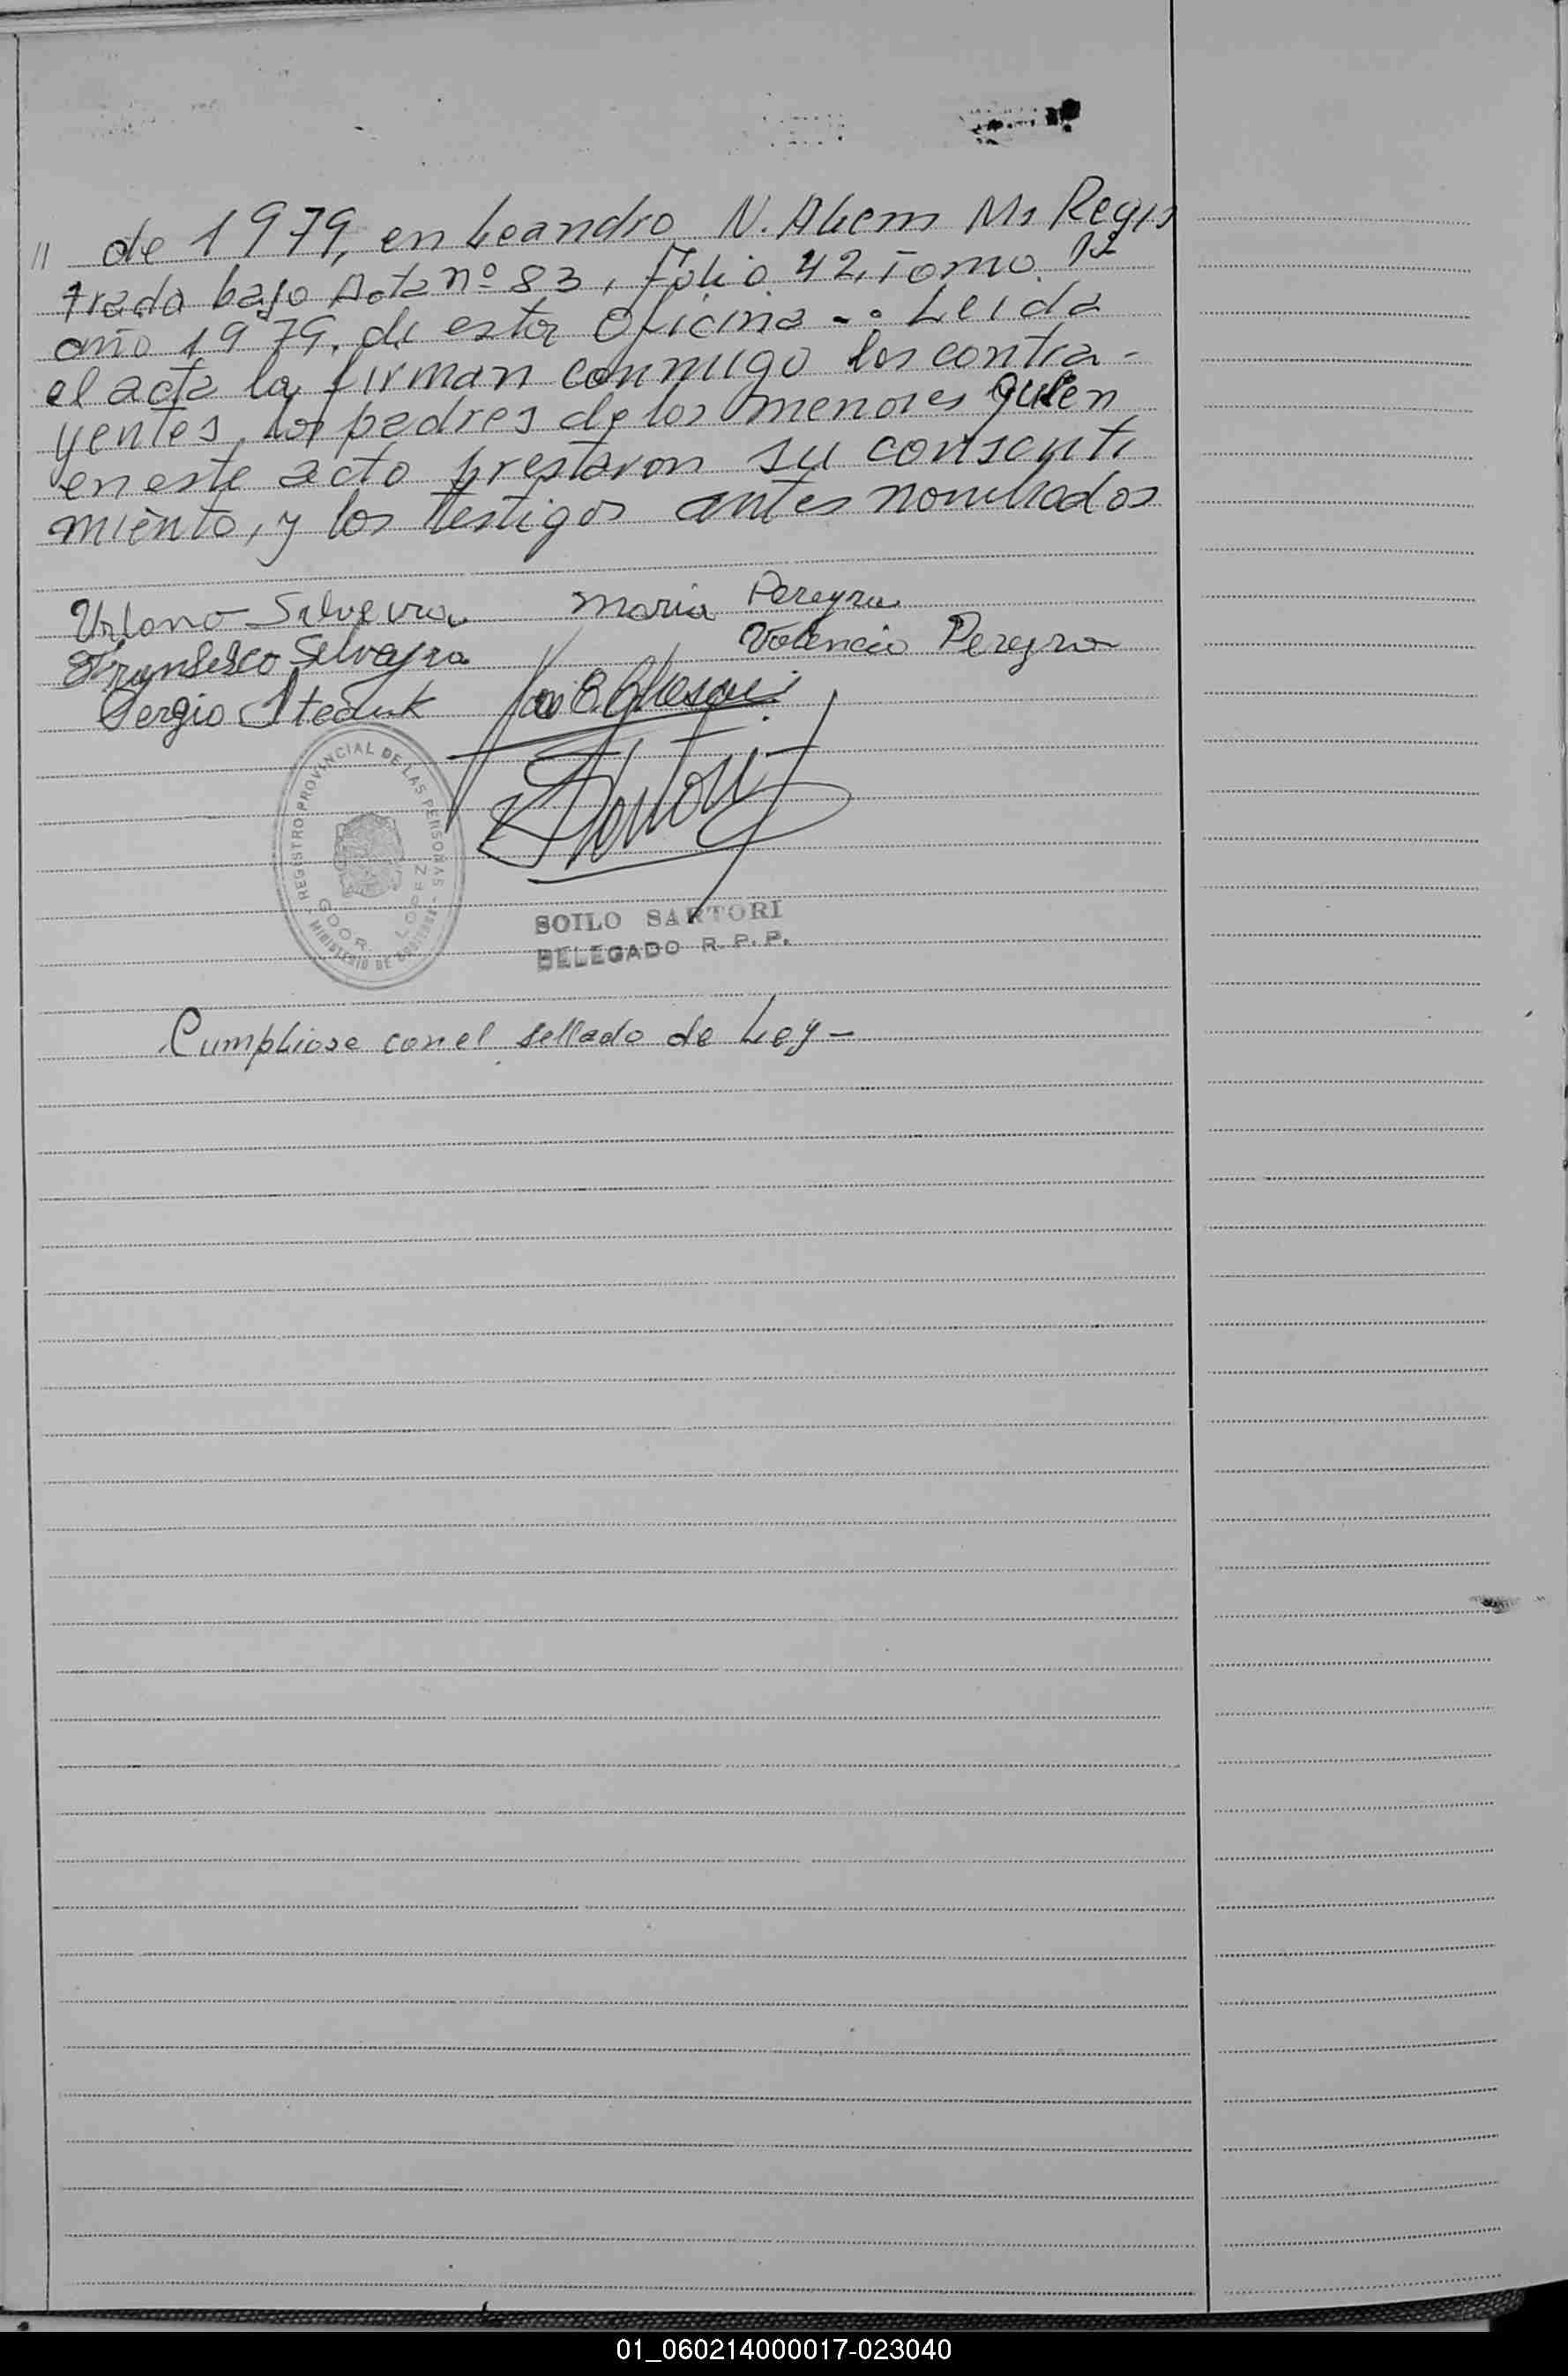 11 de 1979, en Leandro N. Alem Ms Regis
trada bajo Acta nº 83, Folio 42, Tomo 1º
año 1979, de esta Oficina -. Leida
el acta la firman conmigo los contra-
yentes, los padres de los menores quien
en este acto prestaron su consenti
miento, y los testigos antes nombrados
Urbano Silveira Maria Pereyra
Fransisco Silveyra Valencio Pereyra
Sergio Steciuk
REGISTRO PROVINCIAL DE LAS PERSONAS
GDOR. LOPEZ
MINISTERIO DE GOBIERNO
SOILO SARTORI
DELEGADO R. P. P.
Cumpliose con el sellado de Ley-
01_060214000017-023040